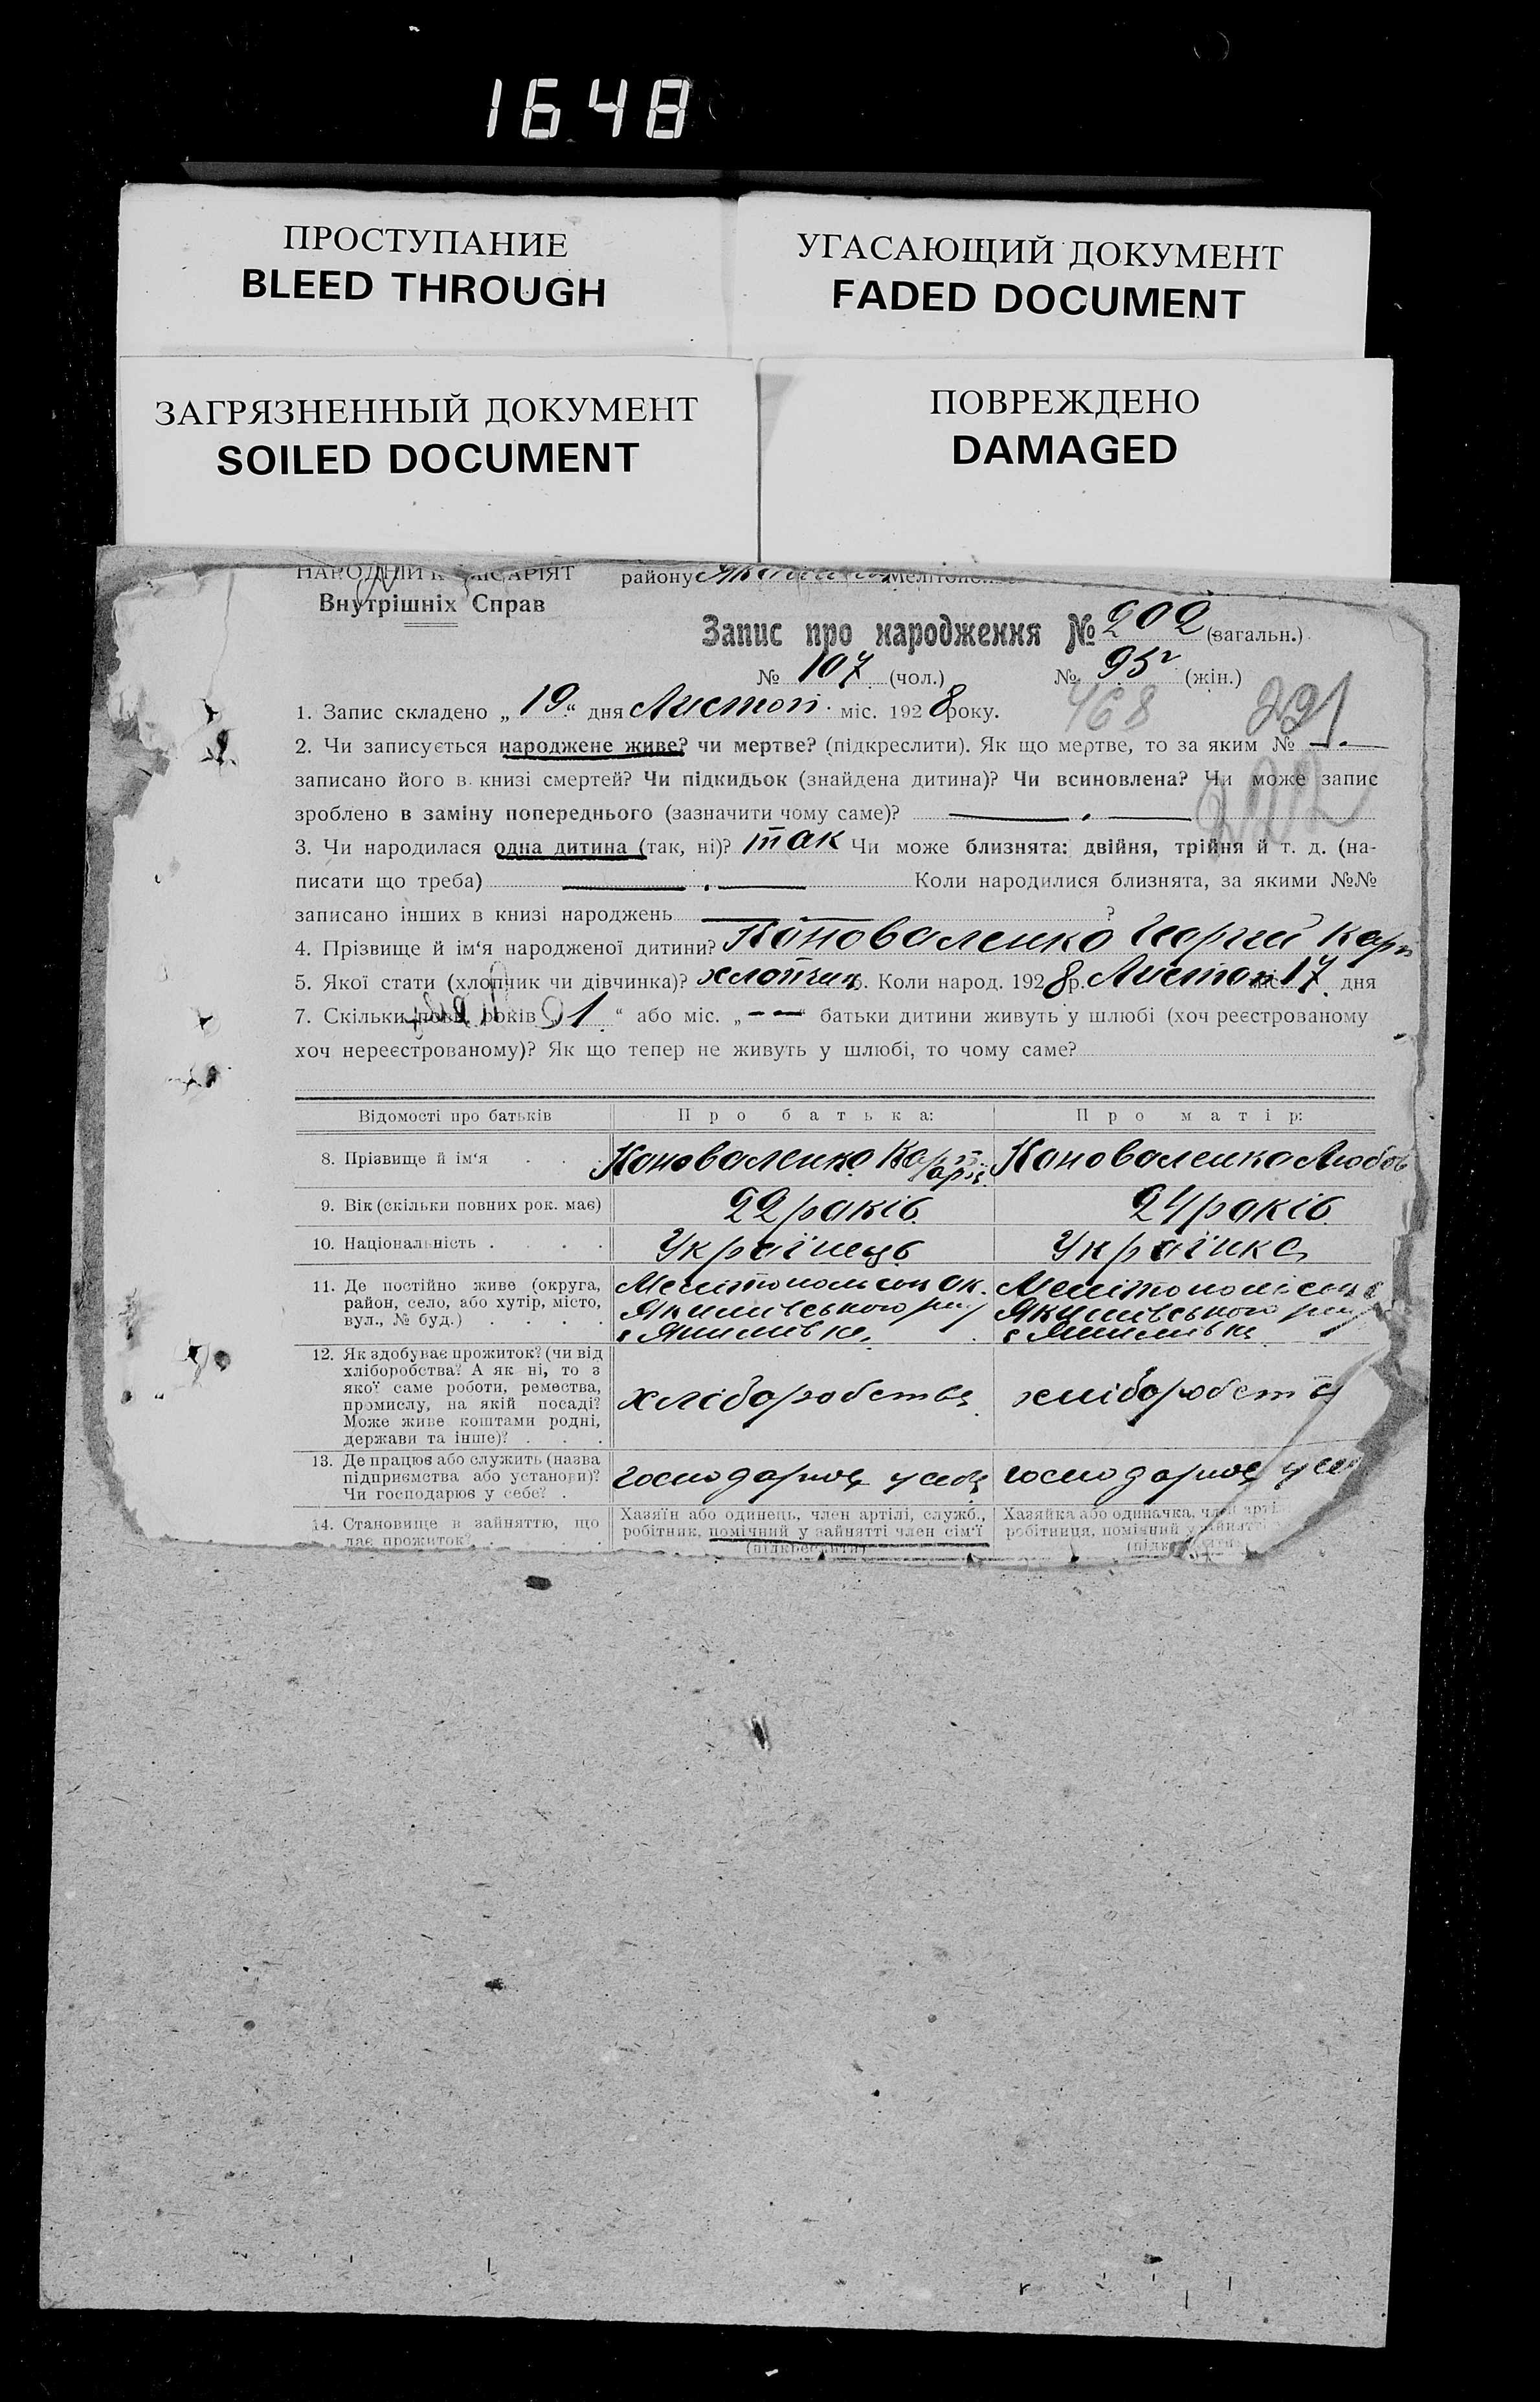 1648
ПРОСТУПАНИЕ
BLEED THROUGH
УГАСАЮЩИЙ ДОКУМЕНТ
FADED DOCUMENT
ЗАГРЯЗНЕННЫЙ ДОКУМЕНТ
SOILED DOCUMENT
ПОВРЕЖДЕНО
DAMAGED
району
Внутрішніх Справ
Запис про народження № 202 (загальн.)
№ 107 (чол.) № 95 (жін.)
468 221
1. Запис складено „19“ дня Листоп. міс. 1928 року.
2. Чи записується народжене живе? чи мертве? (підкреслити). Як що мертве, то за яким № —.—
записано його в книзі смертей? Чи підкидьок (знайдена дитина)? Чи всиновлена? Чи може запис
зроблено в заміну попереднього (зазначити чому саме)? —.—
202
3. Чи народилася одна дитина (так, ні)? так Чи може близнята: двійня, трійня й т. д. (на-
писати що треба) —.— Коли народилися близнята, за якими №№
записано інших в книзі народжень — ?
4. Прізвище й ім‘я народженої дитини? Коноваленко Георгій
5. Якої стати (хлопчик чи дівчинка)? хлопчик 6. Коли народ. 1928 р. Листоп міс. 17 дня
7. Скільки повн. років „1“ або міс. „— —“ батьки дитини живуть у шлюбі (хоч реєстрованому
хоч нереєстрованому)? Як що тепер не живуть у шлюбі, то чому саме?
Відомості про батьків Про батька: Про матір:
8. Прізвище й ім‘я . . . Коноваленко Коноваленко Любов
9. Вік (скільки повних рок. має) 22 років 24 років
10. Національність . . . . Українець Українка
11. Де постійно живе (округа,
район, село, або хутір, місто,
вул., № буд.) . . . .
Мелітопольськ ок.
Якимівського рай
с Якимівка
Мелітопольськ
Якимівського рай
с Якимівка
12. Як здобуває прожиток? (чи від
хліборобства? А як ні, то з
якої саме роботи, ремества,
промислу, на якій посаді?
Може живе коштами родні,
держави та інше)? . . .
хліборобства хліборобства
13. Де працює або служить (назва
підприємства або установи)?
Чи господарює у себе? .
господарює у себе господарює у себе
14. Становище в зайняттю, що
дає прожиток? . . . .
Хазяїн або одинець, член артілі, служб.,
робітник, помічний у зайнятті член сім‘ї
(підкреслити)
Хазяйка або одиначка, член артіл
робітниця, помічний у зайнятті